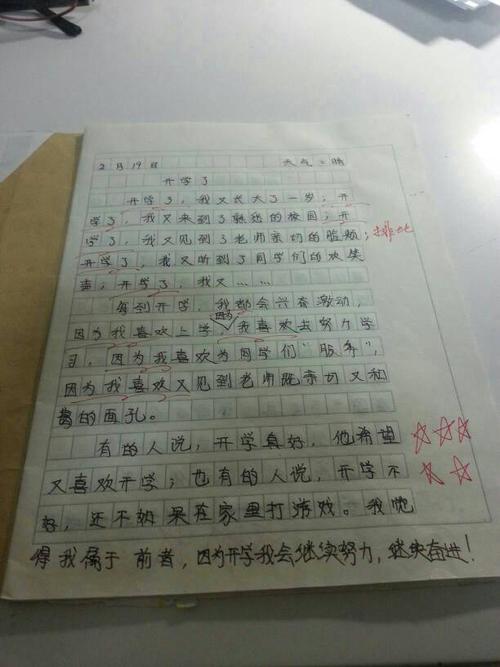 2月19日 天气:晴
开学了
开学了,我又长大了一岁;开
学了,我又来到了熟悉的校园;开
学了,我又见到了老师亲切的脸颊;排比
开学了,我又听到了同学们的欢笑
声;开学了,我又……
每到开学,我都会兴奋激动,
因为我喜欢上学,因为我喜欢去努力学
习,因为我喜欢为同学们“服务”,
因为我喜欢又见到老师既亲切又和
蔼的面孔。
有的人说,开学真好,他希望
又喜欢开学;也有的人说,开学不
好,还不如果在家里打游戏。我觉
得我属于前者,因为开学我会继续努力,继续奋进!